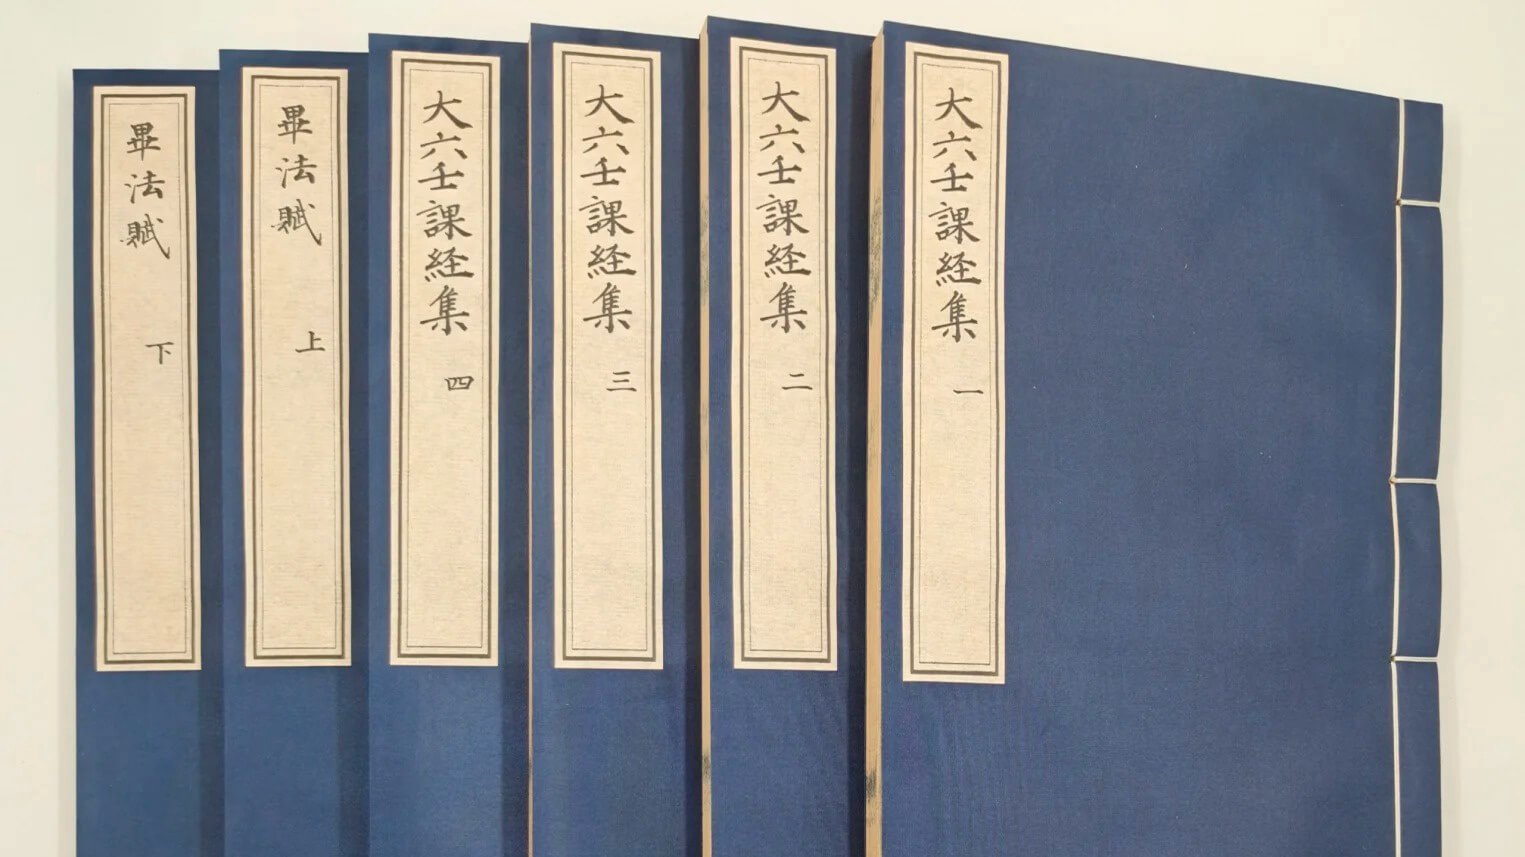 大六壬課経集 一
大六壬課経集 二
大六壬課経集 三
大六壬課経集 四
畢法賦 上
畢法賦 下